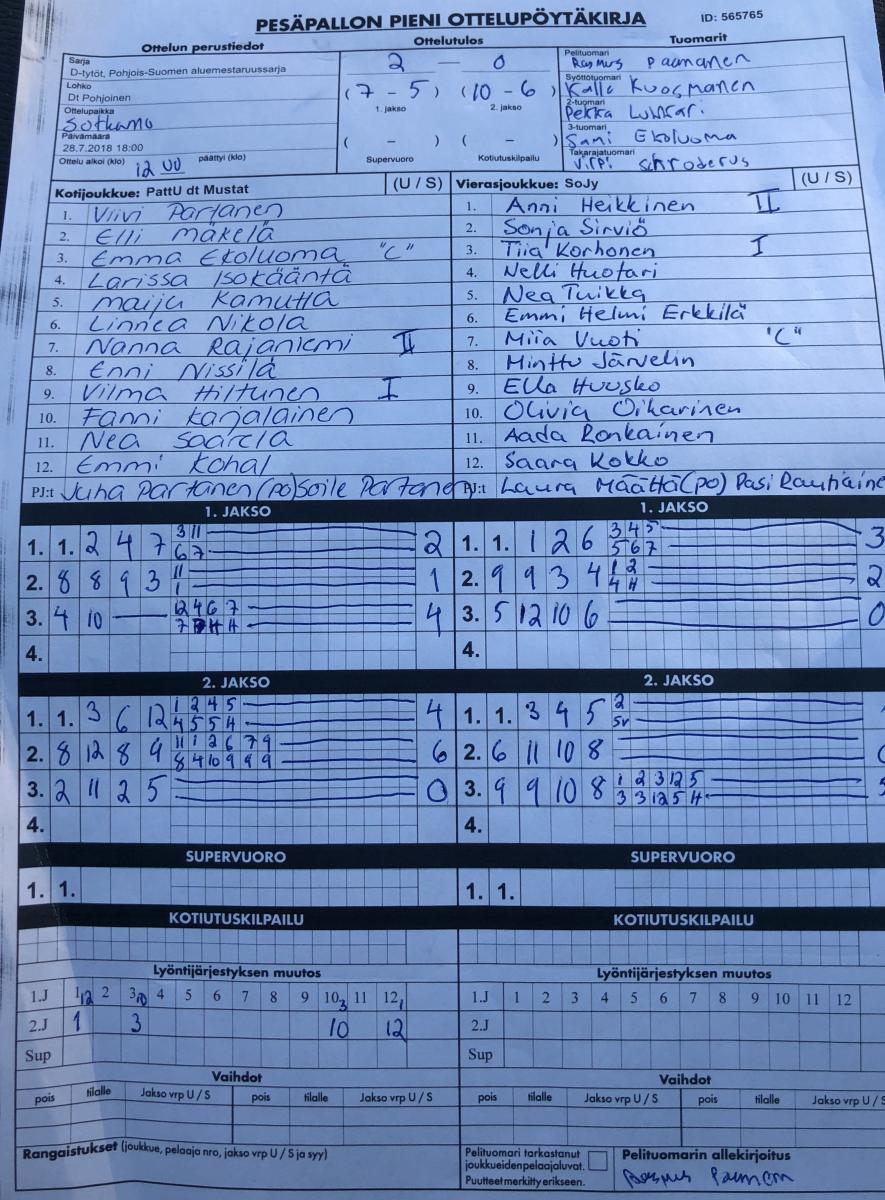 PESÄPALLON PIENI OTTELUPÖYTÄKIRJA ID: 565765
Ottelun perustiedot Ottelutulos Tuomarit
Sarja
D-tytöt, Pohjois-Suomen aluemestaruussarja
Lohko
Dt Pohjoinen
Ottelupaikka
Sotkamo
Päivämäärä
28.7.2018 18:00
Ottelu alkoi (klo) 12 00 päättyi (klo)
2 — 0
( 7 - 5 ) ( 10 - 6 )
1. jakso 2. jakso
( - ) ( - )
Supervuoro Kotiutuskilpailu
Pelituomari
Rasmus Paananen
Syöttötuomari
Kalle Kuosmanen
2-tuomari
Pekka Luhkari
3-tuomari
Sami Ekoluoma
Takarajatuomari
Virpi Schroderus
Kotijoukkue: PattU dt Mustat (U / S)
1. Viivi Partanen
2. Elli Mäkelä
3. Emma Ekoluoma "C"
4. Larissa Isokääntä
5. Maiju Kamutta
6. Linnea Nikola
7. Nanna Rajaniemi II
8. Enni Nissilä
9. Vilma Hiltunen I
10. Fanni Karjalainen
11. Nea Saarela
12. Emmi Kohal
PJ:t Juha Partanen (po) Soile Partanen
Vierasjoukkue: SoJy (U / S)
1. Anni Heikkinen II
2. Sonja Sirviö
3. Tiia Korhonen I
4. Nelli Huotari
5. Nea Tuikka
6. Emmi Helmi Erkkilä
7. Miia Vuoti "C"
8. Minttu Järvelin
9. Ella Huusko
10. Olivia Oikarinen
11. Aada Ronkainen
12. Saara Kokko
PJ:t Laura Määttä (po) Pasi Rautiaine
1. JAKSO
1. 1. 2 4 7 3 11 2
6 7
2. 8 8 9 3 11 1
1
3. 4 10 12 4 6 7 4
7 H H
4.
1. JAKSO
1. 1. 1 2 6 3 4 5 3
5 6 7
2. 9 9 3 4 1 2 2
4 H
3. 5 12 10 6 0
4.
2. JAKSO
1. 1. 3 6 12 1 2 4 5 4
4 5 5 H
2. 8 12 8 9 11 1 2 6 7 9 6
8 4 10 9 9 9
3. 2 11 2 5 0
4.
2. JAKSO
1. 1. 3 4 5 2
5v
2. 6 11 10 8
3. 9 9 10 8 1 2 3 12 5
3 3 12 5 H
4.
SUPERVUORO
1. 1.
SUPERVUORO
1. 1.
KOTIUTUSKILPAILU
KOTIUTUSKILPAILU
Lyöntijärjestyksen muutos
1.J 1 12 2 3 10 4 5 6 7 8 9 10 3 11 12 1
2.J 1 3 10 12
Sup
Lyöntijärjestyksen muutos
1.J 1 2 3 4 5 6 7 8 9 10 11 12
2.J
Sup
Vaihdot
pois tilalle Jakso vrp U / S pois tilalle Jakso vrp U / S
Vaihdot
pois tilalle Jakso vrp U / S pois tilalle Jakso vrp U / S
Rangaistukset (joukkue, pelaaja nro, jakso vrp U / S ja syy)
Pelituomari tarkastanut
joukkueiden pelaajaluvat.
Puutteet merkitty erikseen.
Pelituomarin allekirjoitus